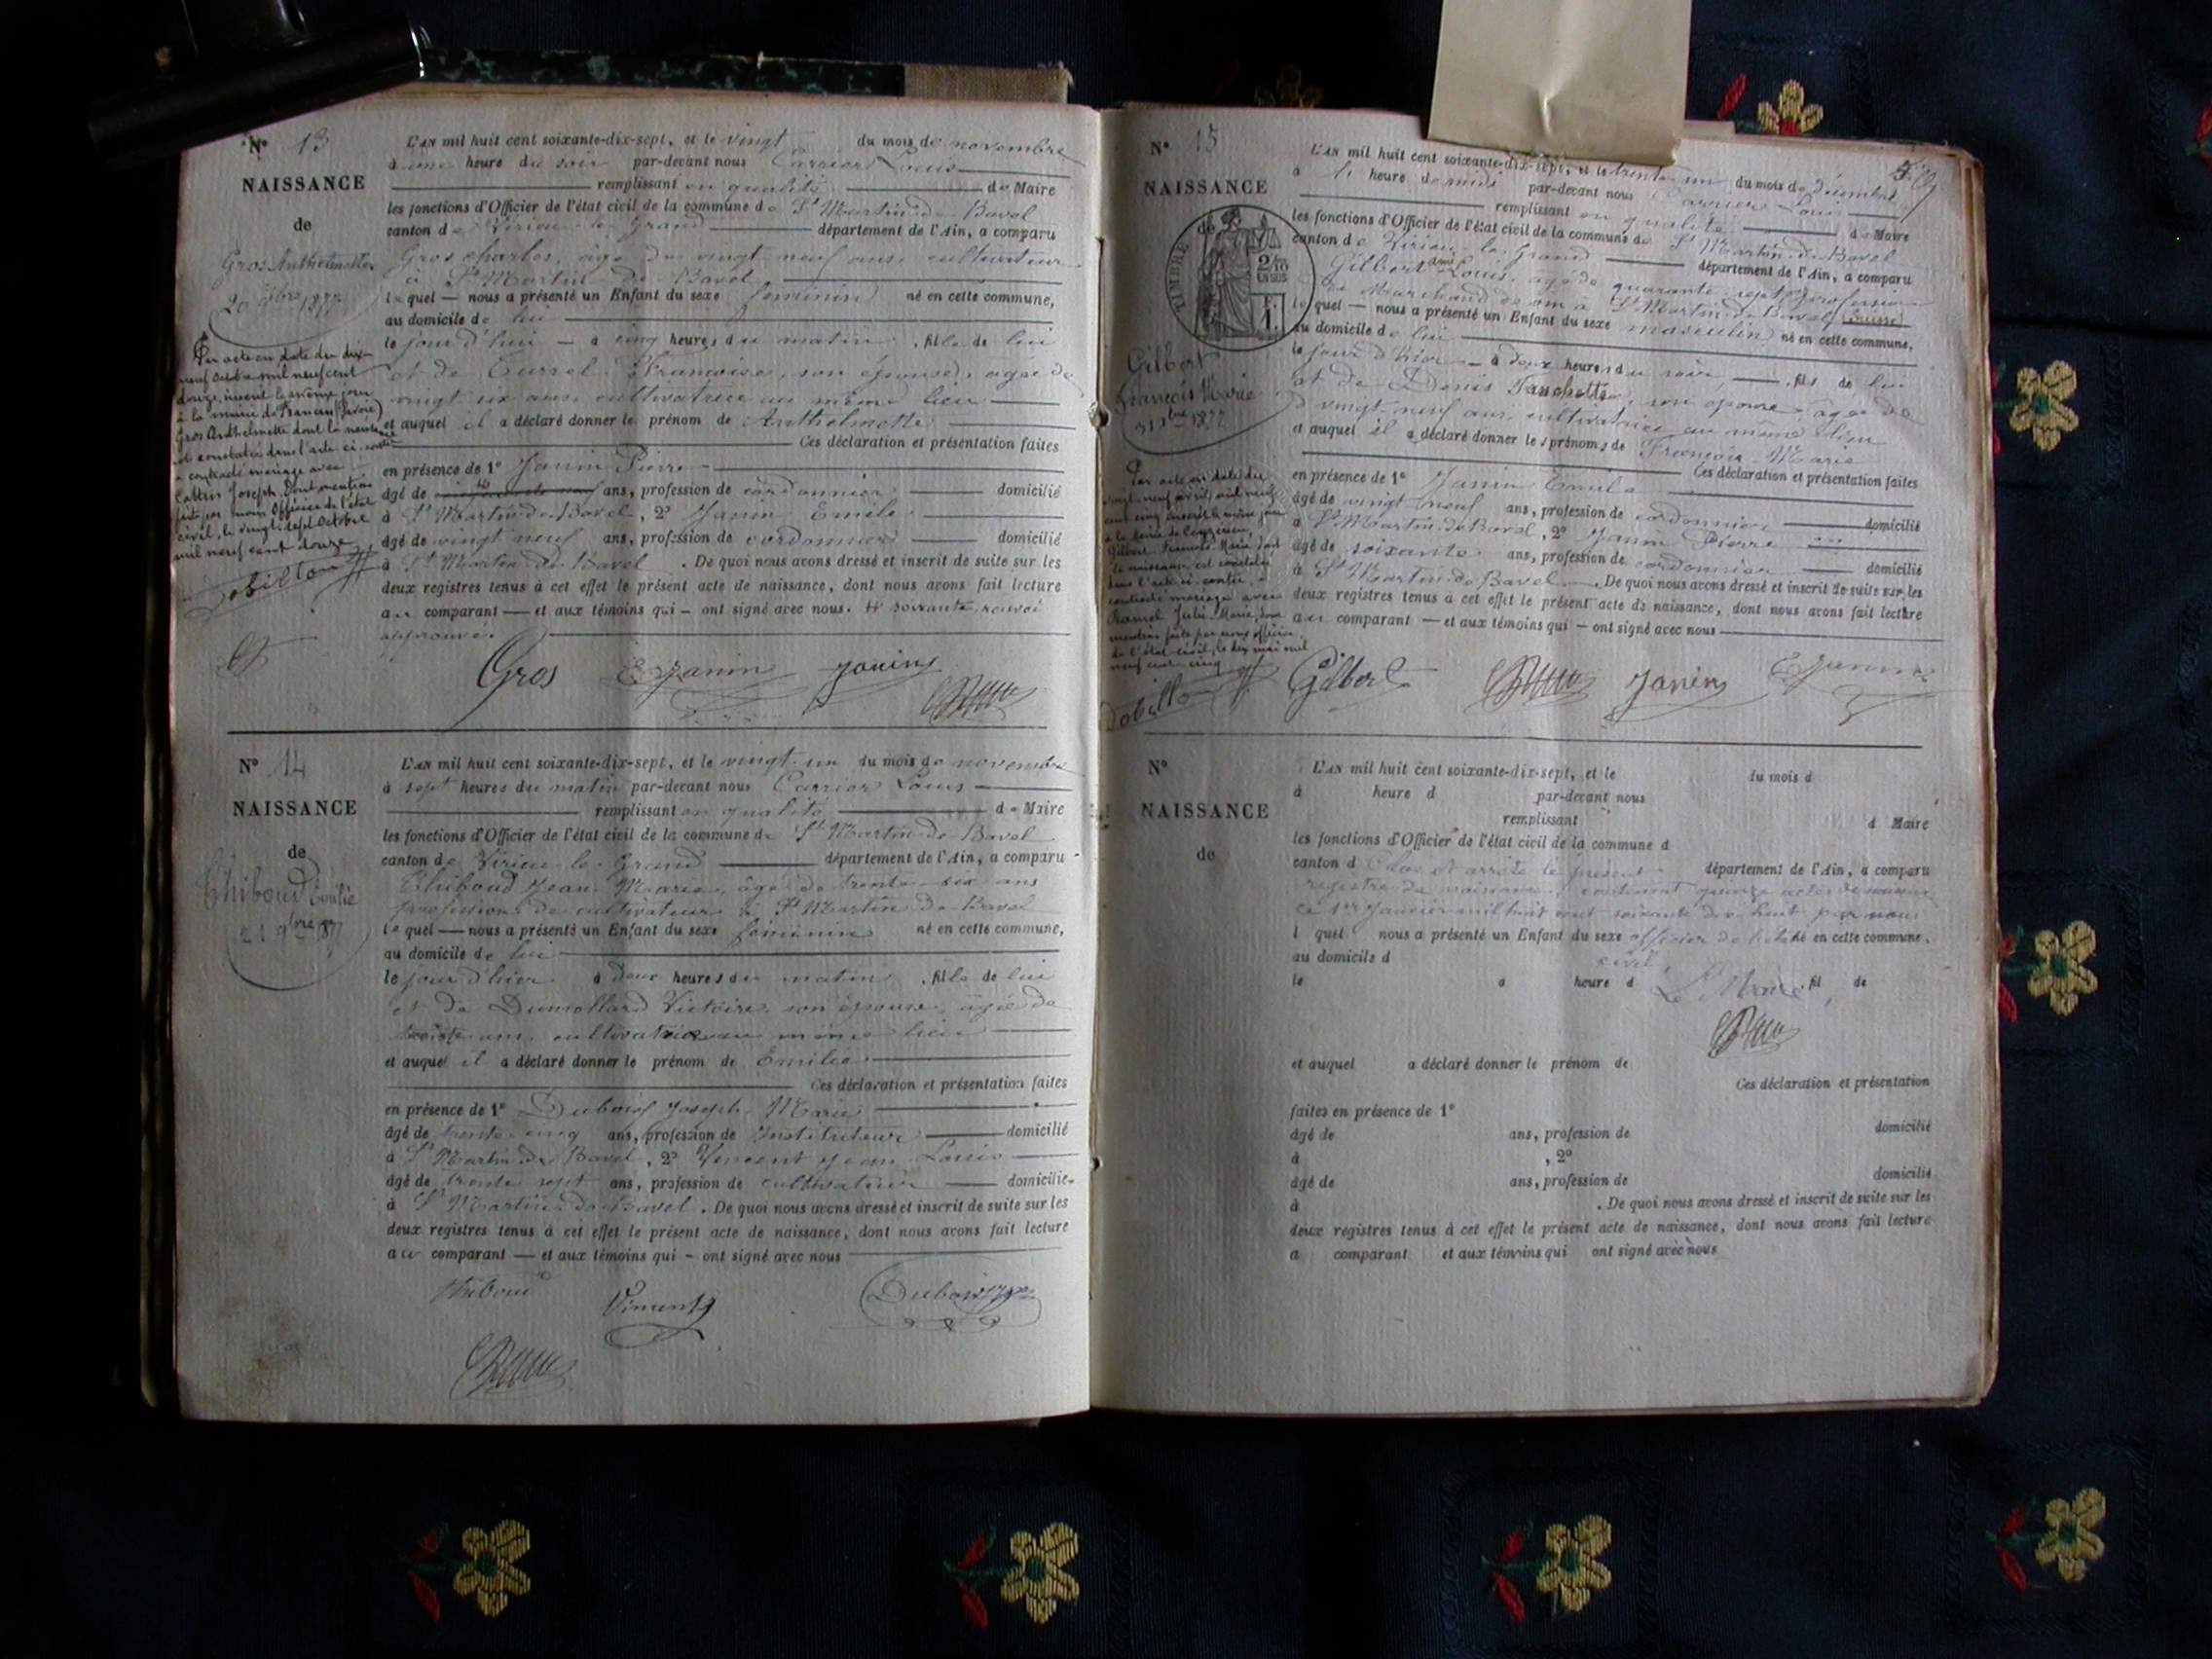 N° 13
NAISSANCE
de
Gros Anthelmette
20 9bre 1877
Par acte en date du dix-
neuf Octobre mil neuf cent
douze, inscrit le même jour
à la mairie de Francin (Savoie)
Gros Anthelmette dont la naissance
est constatée dans l'acte ci-contre
a contracté mariage avec
Joseph. Dont mention
faite par nous Officier de l'état
civil, le vingt-sept Octobre
mil neuf cent douze
L'AN mil huit cent soixante-dix-sept, et le vingt du mois de novembre
à une heure du soir par-devant nous Carrier Louis
remplissant en qualité de Maire
les fonctions d'Officier de l'état civil de la commune de St Martin de Bavel
canton de Virieu-le-Grand département de l'Ain, a comparu
Gros Charles, âgé de vingt-neuf ans, cultivateur
à St Martin de Bavel
lequel nous a présenté un Enfant du sexe féminin né en cette commune,
au domicile de lui
le jour d'hui à cinq heures du matin, fille de lui
et de Currel Françoise, son épouse, âgée de
vingt six ans, cultivatrice au même lieu
et auquel il a déclaré donner le prénom de Anthelmette
Ces déclaration et présentation faites
en présence de 1° Janin Pierre
âgé de ans, profession de cordonnier domicilié
à St Martin de Bavel, 2° Janin Emile
âgé de vingt neuf ans, profession de cordonnier domicilié
à St Martin de Bavel. De quoi nous avons dressé et inscrit de suite sur les
deux registres tenus à cet effet le présent acte de naissance, dont nous avons fait lecture
au comparant et aux témoins qui ont signé avec nous. soixante, renvoi
approuvé.
Gros E Janin Janin
N° 14
NAISSANCE
de
Thiboud Emilie
21 9bre 1877
L'AN mil huit cent soixante-dix-sept, et le vingt-un du mois de novembre
à sept heures du matin par-devant nous Carrier Louis
remplissant en qualité de Maire
les fonctions d'Officier de l'état civil de la commune de St Martin de Bavel
canton de Virieu-le-Grand département de l'Ain, a comparu
Thiboud Jean Marie, âgé de trente-six ans
profession de cultivateur à St Martin de Bavel
lequel nous a présenté un Enfant du sexe féminin né en cette commune,
au domicile de lui
le jour d'hier à deux heures du matin, fille de lui
et de Dumollard Victoire son épouse, âgée de
trente ans, cultivatrice au même lieu
et auquel il a déclaré donner le prénom de Emilie
Ces déclaration et présentation faites
en présence de 1° Dubois Joseph Marie
âgé de trente-cinq ans, profession de Instituteur domicilié
à St Martin de Bavel, 2° Vincent Jean Louis
âgé de trente sept ans, profession de cultivateur domicilié
à St Martin de Bavel. De quoi nous avons dressé et inscrit de suite sur les
deux registres tenus à cet effet le présent acte de naissance, dont nous avons fait lecture
au comparant et aux témoins qui ont signé avec nous
Thiboud Vincent Dubois
N° 15
NAISSANCE
de
TIMBRE
2/10
EN SUS
1F
Gilbert
François Marie
31 Xbre 1877
Par acte en date du
vingt-neuf avril mil neuf
cent cinq inscrit le même jour
à la mairie de Ceyzérieu,
Gilbert François Marie dont
la naissance est constatée
dans l'acte ci-contre, a
contracté mariage avec
Julie Marie, dont
mention faite par nous officier
de l'état civil, le dix mai mil
neuf cent cinq
L'AN mil huit cent soixante-dix-sept, et le trente-un du mois de décembre
à heure de midi par-devant nous Carrier Louis
remplissant en qualité de Maire
les fonctions d'Officier de l'état civil de la commune de St Martin de Bavel
canton de Virieu-le-Grand département de l'Ain, a comparu
Gilbert Louis, âgé de quarante sept profession
de Marchand à St Martin de Bavel
lequel nous a présenté un Enfant du sexe masculin né en cette commune,
au domicile de lui
le jour d'hier à deux heures du soir, fils de lui
et de Denis Fanchette, son épouse âgée de
vingt-neuf ans cultivatrice au même lieu
et auquel il a déclaré donner les prénoms de François Marie
Ces déclaration et présentation faites
en présence de 1° Janin Emile
âgé de vingt neuf ans, profession de cordonnier domicilié
à St Martin de Bavel, 2° Janin Pierre
âgé de soixante ans, profession de cordonnier domicilié
à St Martin de Bavel. De quoi nous avons dressé et inscrit de suite sur les
deux registres tenus à cet effet le présent acte de naissance, dont nous avons fait lecture
au comparant et aux témoins qui ont signé avec nous
Gilbert Janin E Janin
N°
NAISSANCE
de
L'AN mil huit cent soixante-dix-sept, et le du mois d
à heure d par-devant nous
remplissant d Maire
les fonctions d'Officier de l'état civil de la commune d
canton d département de l'Ain, a comparu
Clos et arrêté le présent
registre de naissance contenant quinze actes de naissance
ce 1er Janvier mil huit cent soixante dix huit par nous
l quel nous a présenté un Enfant du sexe né en cette commune,
officier de l'état
civil,
au domicile d
le à heure d fil de
Le Maire
et auquel a déclaré donner le prénom de
Ces déclaration et présentation
faites en présence de 1°
âgé de ans, profession de domicilié
à , 2°
âgé de ans, profession de domicilié
à . De quoi nous avons dressé et inscrit de suite sur les
deux registres tenus à cet effet le présent acte de naissance, dont nous avons fait lecture
a comparant et aux témoins qui ont signé avec nous